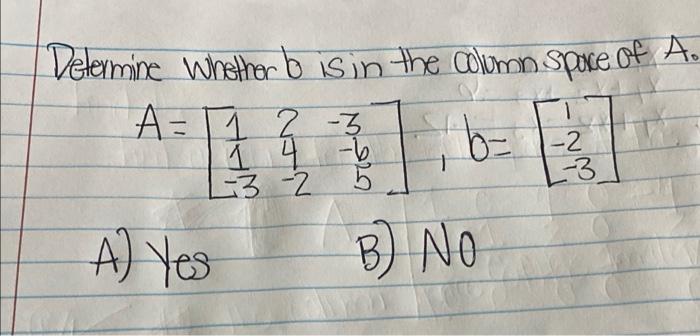 Determine whether b is in the column space of A.
A = [1 2 -3
1 4 -6
-3 -2 5] , b = [1
-2
-3]
A) Yes B) NO